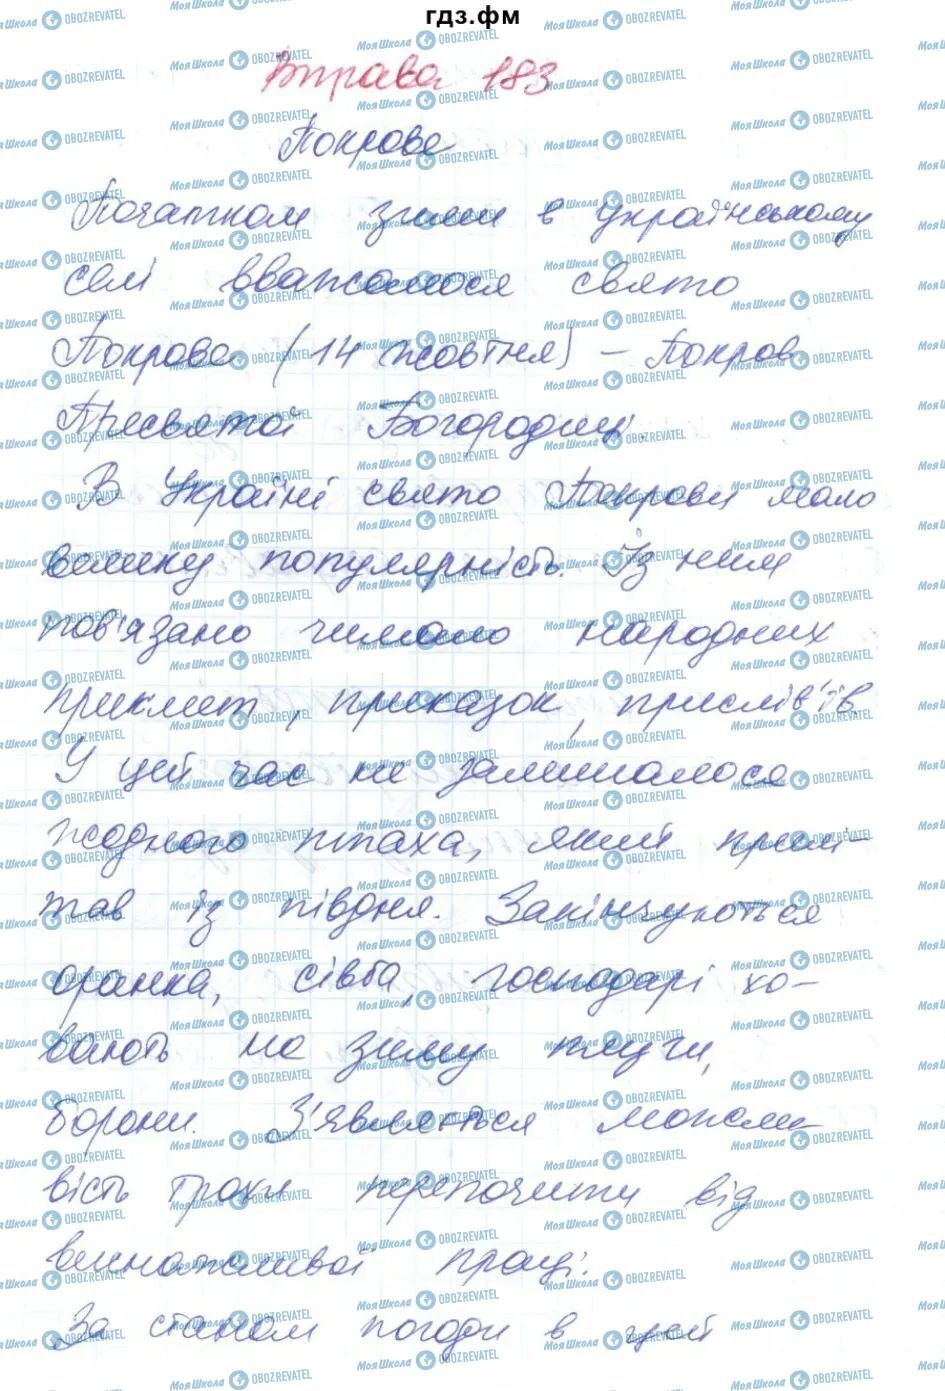 гдз.фм
Вправа 183
Покрова
Початком зими в українському
селі вважалося свято
Покрова (14 жовтня) – Покров
Пресвятої Богородиці.
В Україні свято Покрови мало
велику популярність. Із ним
пов'язано чимало народних
прикмет, приказок, прислів'їв.
У цей час не залишалося
жодного птаха, який примі-
тав із півдня. Закінчуються
оранка, сівба, господарі хо-
вають на зиму плуги,
борони. З'являється можли-
вість трохи перепочити від
виснажливої праці.
За станом погоди в цей